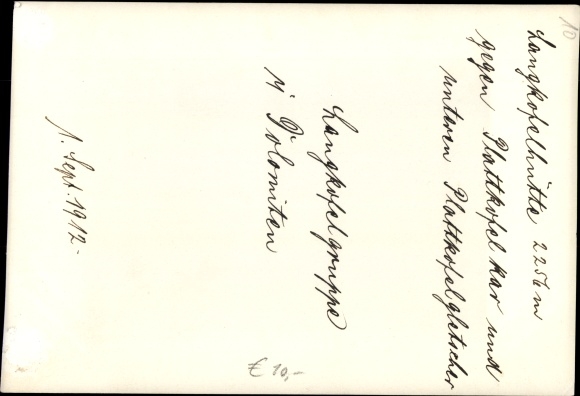 10
Langkofelhütte 2256m
gegen Plattkofelkar und
unteren Plattkofelgletscher
Langkofelgruppe
Dolomiten
1. Sept. 1912-
€ 10,-